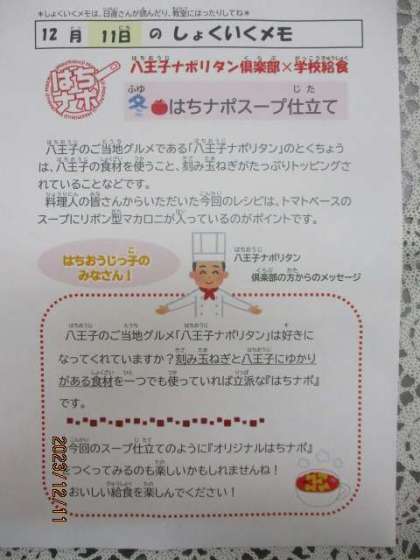 ＊しょくいくメモは、日直さんが読んだり、教室にはったりしてね＊
12月 11日 の しょくいくメモ
はちナポ
八王子ナポリタン倶楽部×学校給食
冬🍅はちナポスープ仕立て
八王子のご当地グルメである「八王子ナポリタン」のとくちょう
は、八王子の食材を使うこと、刻み玉ねぎがたっぷりトッピングさ
れていることなどです。
料理人の皆さんからいただいた今回のレシピは、トマトベースの
スープにリボン型マカロニが入っているのがポイントです。
はちおうじっ子の
みなさん！
八王子ナポリタン
倶楽部の方からのメッセージ
八王子のご当地グルメ「八王子ナポリタン」は好きに
なってくれていますか？刻み玉ねぎと八王子にゆかり
がある食材を一つでも使っていれば立派な『はちナポ』
です。
今回のスープ仕立てのように『オリジナルはちナポ』
をつくってみるのも楽しいかもしれませんね！
おいしい給食を楽しんでください！
2023/12/11